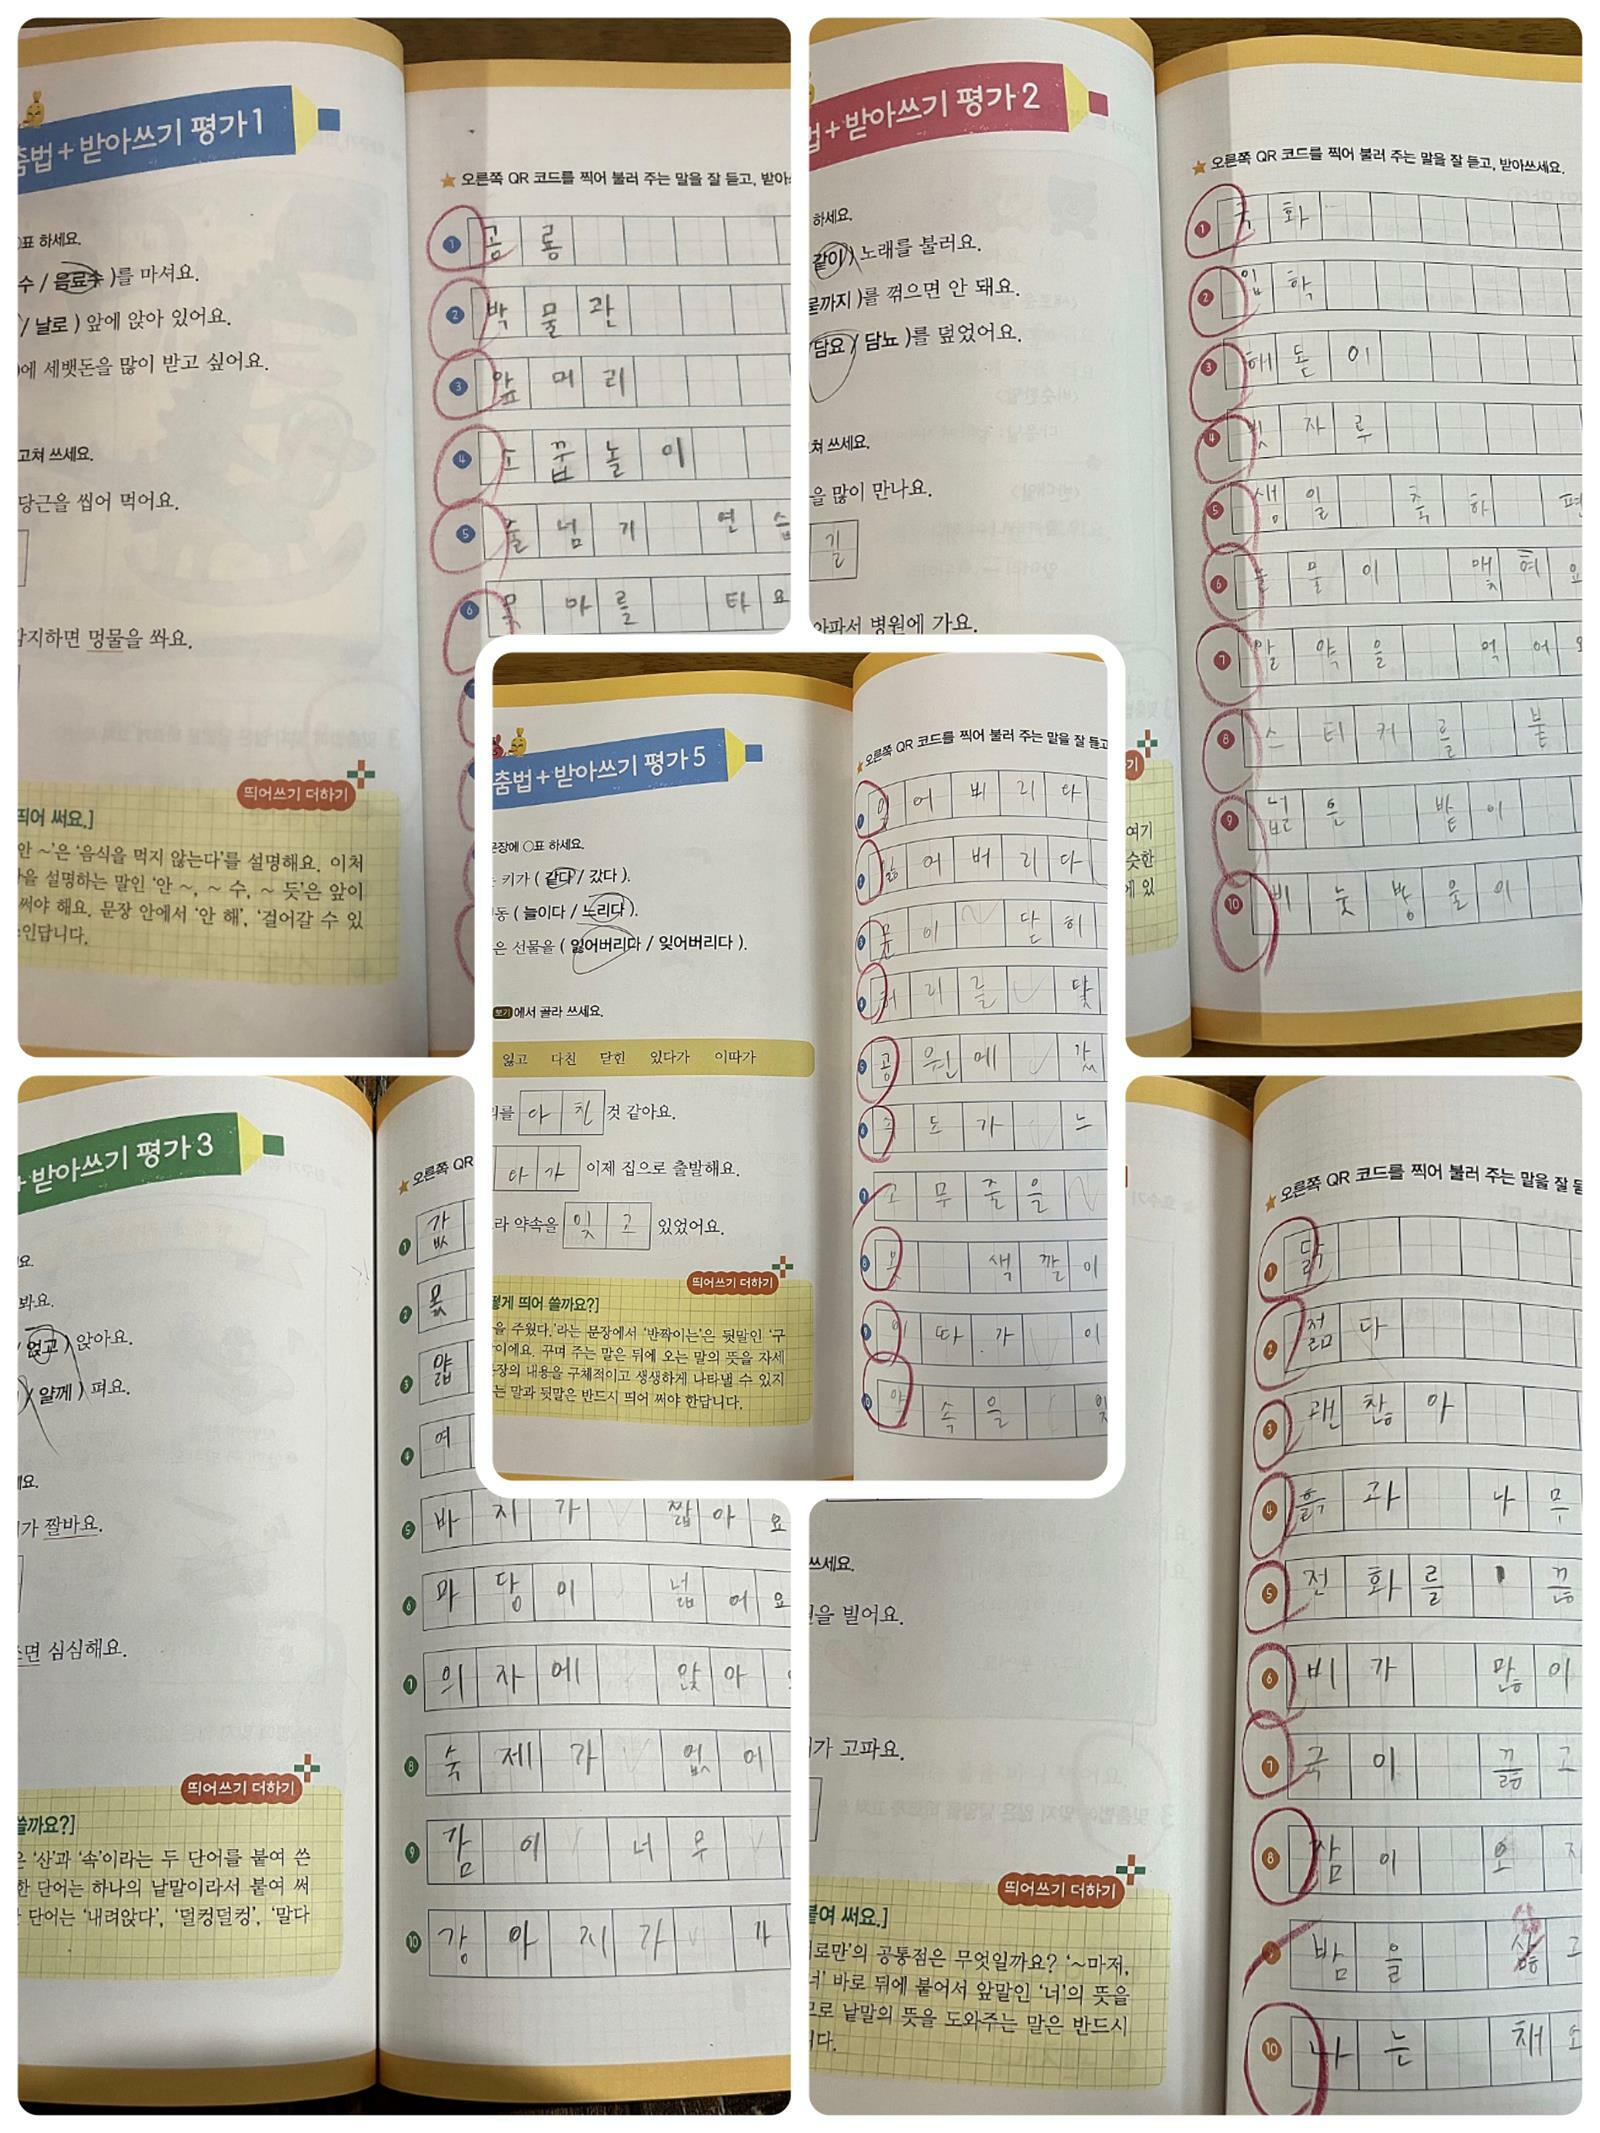 춤법+받아쓰기 평가1
○표 하세요.
수 / 음료수 )를 마셔요.
/ 날로 ) 앞에 앉아 있어요.
에 세뱃돈을 많이 받고 싶어요.
고쳐 쓰세요.
당근을 씹어 먹어요.
감지하면 멍물을 쏴요.
띄어쓰기 더하기
띄어 써요.]
안 ~'은 '음식을 먹지 않는다'를 설명해요. 이처
을 설명하는 말인 '안 ~, ~ 수, ~ 듯'은 앞이
써야 해요. 문장 안에서 '안 해', '걸어갈 수 있
인답니다.
오른쪽 QR 코드를 찍어 불러 주는 말을 잘 듣고, 받아
1 공룡
2 박물관
3 앞머리
4 소꿉놀이
5 줄넘기 연습
6 목마를 타요
법+받아쓰기 평가2
하세요.
같이 ) 노래를 불러요.
까지 )를 꺾으면 안 돼요.
담요 / 담뇨 )를 덮었어요.
쳐 쓰세요.
을 많이 만나요.
길
아파서 병원에 가요.
기
여기
슷한
에 있
오른쪽 QR 코드를 찍어 불러 주는 말을 잘 듣고, 받아쓰세요.
1 국화
2 입학
3 해돋이
4 빗자루
5 생일 축하 편
6 눈물이 맺혀요
7 알약을 먹어요
8 스티커를 붙
9 넓은 밭이
10 비눗방울이
춤법+받아쓰기 평가5
문장에 ○표 하세요.
키가 ( 같다 / 갔다 ).
동 ( 늘이다 / 느리다 ).
은 선물을 ( 잃어버리다 / 잊어버리다 ).
보기 에서 골라 쓰세요.
잃고 다친 닫힌 있다가 이따가
를 다친 것 같아요.
따가 이제 집으로 출발해요.
라 약속을 잊고 있었어요.
띄어쓰기 더하기
떻게 띄어 쓸까요?]
을 주웠다.'라는 문장에서 '반짝이는'은 뒷말인 '구
이에요. 꾸며 주는 말은 뒤에 오는 말의 뜻을 자세
장의 내용을 구체적이고 생생하게 나타낼 수 있지
는 말과 뒷말은 반드시 띄어 써야 한답니다.
오른쪽 QR 코드를 찍어 불러 주는 말을 잘 듣고
어버리다
잃어버리다
문이 닫히
허리를 닻
공원에 갔
속도가 느
7 고무줄을
8 색깔이
9 이따가 이
10 약속을 잊
받아쓰기 평가3
요.
봐요.
/ 얹고 ) 앉아요.
/ 얄께 ) 펴요.
요.
가 짤바요.
면 심심해요.
띄어쓰기 더하기
쓸까요?]
은 '산'과 '속'이라는 두 단어를 붙여 쓴
한 단어는 하나의 낱말이라서 붙여 써
단어는 '내려앉다', '덜컹덜컹', '말다
오른쪽 QR
1 값
2 몫
3 얇
4 여
5 바지가 짧아요
6 마당이 넓어요
7 의자에 앉아
8 숙제가 없어
9 감이 너무
10 강아지라 가
쓰세요.
을 빌어요.
가 고파요.
띄어쓰기 더하기
붙여 써요.]
로만'의 공통점은 무엇일까요? '~마저,
너' 바로 뒤에 붙어서 앞말인 '너'의 뜻을
므로 낱말의 뜻을 도와주는 말은 반드시
다.
오른쪽 QR 코드를 찍어 불러 주는 말을 잘 듣
1 닭
2 젊다
3 괜찮아
4 흙과 나무
5 전화를 끊
6 비가 많이
7 국이 끓고
8 잠이 오지
9 밤을 삶고
10 나는 채소